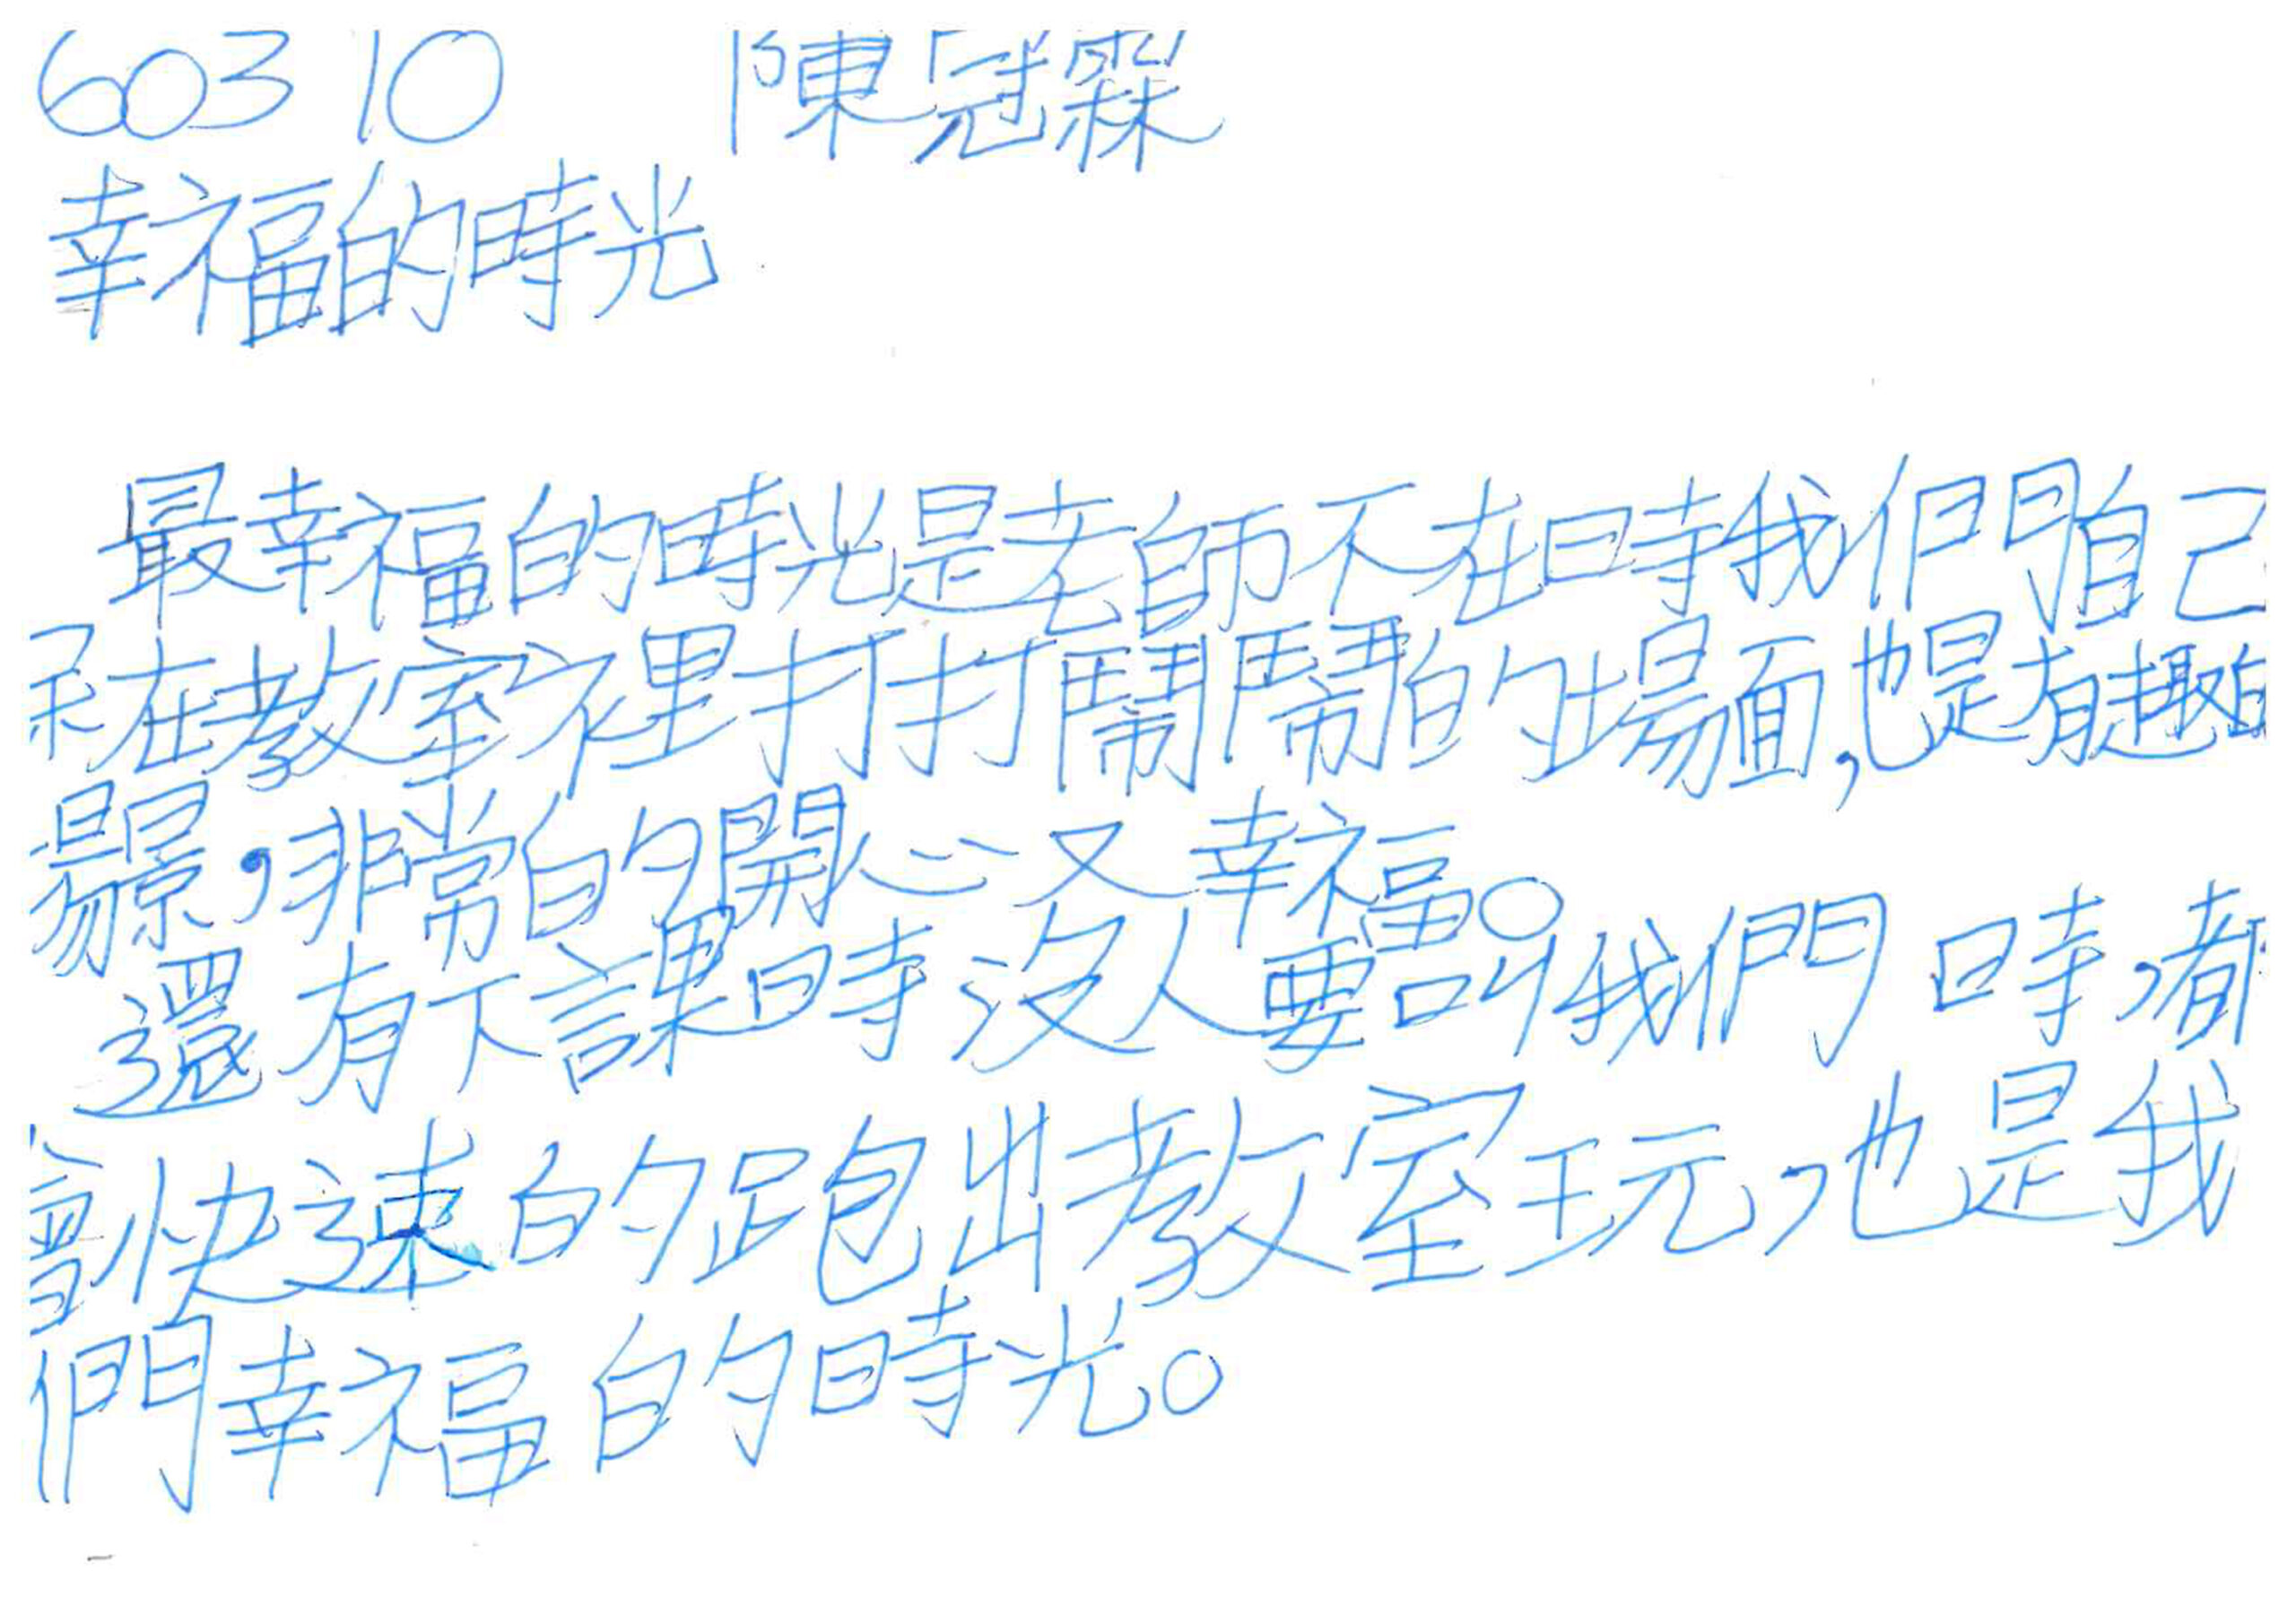 603 10 陳冠霖
幸福的時光
最幸福的時光是老師不在時我們自己
呆在教室裡打打鬧鬧的場面,也是有趣的
場景,非常的開心又幸福。
還有下課時沒人要叫我們時,都
會快速的跑出教室玩,也是我
們幸福的時光。